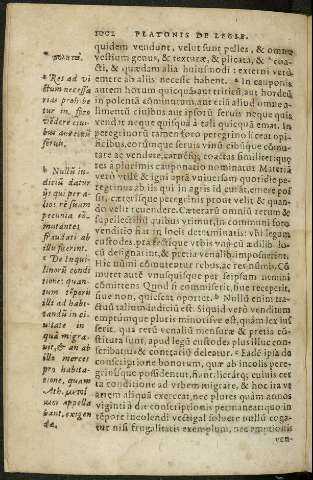 1002 PLATONIS DE LEGIB.
quidem vendunt, velut sunt pelles, & omne
vestium genus, & texturæ, & plicata, & coa-
cti, & quædam alia huiusmodi: externi verò
emere ab aliis necesse habent. In cauponis
autem horum quicquam aut tritici aut hordei
in polentā cōminutum, aut etiā aliorū alimen-
vendat neque quisquā à tali quicquā emat. In
peregrinorū tamen foro peregrino liceat opi-
ficibus, eorūmque seruis vinū cibosque cōmu-
tare ac vendere, carnésque
tes à plurimis cauponatio nominatur. Materiā
verò vtilē & igni aptā vniuersam quotidie pe-
regrinus ab iis qui in agris id curāt, emere pos-
sit, cæterisque peregrinis prout velit & quan-
do velit reuendere. Cæterarū omniū rerum &
supellectiliū quibus vtimur, in communi foro
venditio fiat in locis determinatis: vbi legum
custodes, præfectique vrbis vnà cū ædilib. lo-
cū designarint, & pretia venalib. imposuerint.
Hic nūmi cōmutentur rebus, ac res nūmis. Cō-
mutet autē vnusquisque per seipsum nemini
cōmittens. Quod si commiserit, siue receperit,
siue non, quiescat oportet. Nullū enim tra-
ctus talium iudiciū est. Siquid verò venditum
emptumque pluris minorisve est, quàm lex ius-
serit, qua rerū venaliū mensuræ & pretia cō-
stituta sunt, apud legū custodes plus illuc con-
scribatur & contrariū deleatur. Eadē ipsa de
conscriptione bonorum, quæ ab incolis pere-
grinisque possidentur, fiant.
ta conditione ad vrbem migrate, & hoc ita ve
artem aliquā exerceat, nec plures quàm annos
viginti à die conscriptionis permaneat: quo in
tēpore incolendi vectigal soluere nullū coga-
tur nisi frugalitatis exemplum, nec emptionis
ven-
Res ad vi-
ctum necessa
rias prohibe
tur in foro
vēdere ciui-
bus aut ciuiū
seruis.
Nullū in-
diciū datur
iis qui per a-
lios rē suam
pecunia cō-
mutantes
fraudati ab
illis fuerint.
De Inqui-
linorū condi
tione: quan-
tum tēporis
illis ad habi-
tandū in ci-
uitate in
quā migra-
uit, & an ab
illis merces
pro habita-
tione, quam
Ath.
appella
bant, exigen
da.